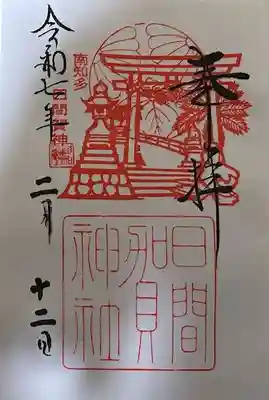 奉拝
南知多
日間賀神社
日間加賀神社
令和七年
二月
十二日